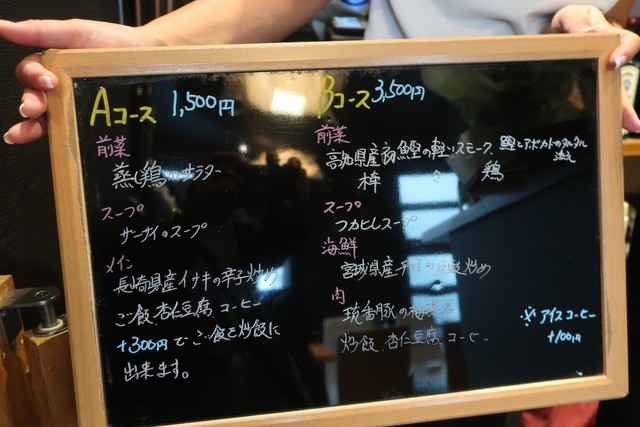 Aコース 1,500円
前菜
蒸し鶏のサラダー
スープ
ザーサイのスープ
メイン
長崎県産イサキの辛子炒め
ご飯、杏仁豆腐、コーヒー
+300円でご飯を炒飯に
出来ます。
Bコース 3,500円
前菜
高知県産 鰹の軽いスモーク 鰹とアボカドのタルタル
添え
棒々鶏
スープ
フカヒレスープ
海鮮
宮城県産平目の 炒め
肉
琉香豚の
炒飯、杏仁豆腐、コーヒー
※アイスコーヒー
+100円